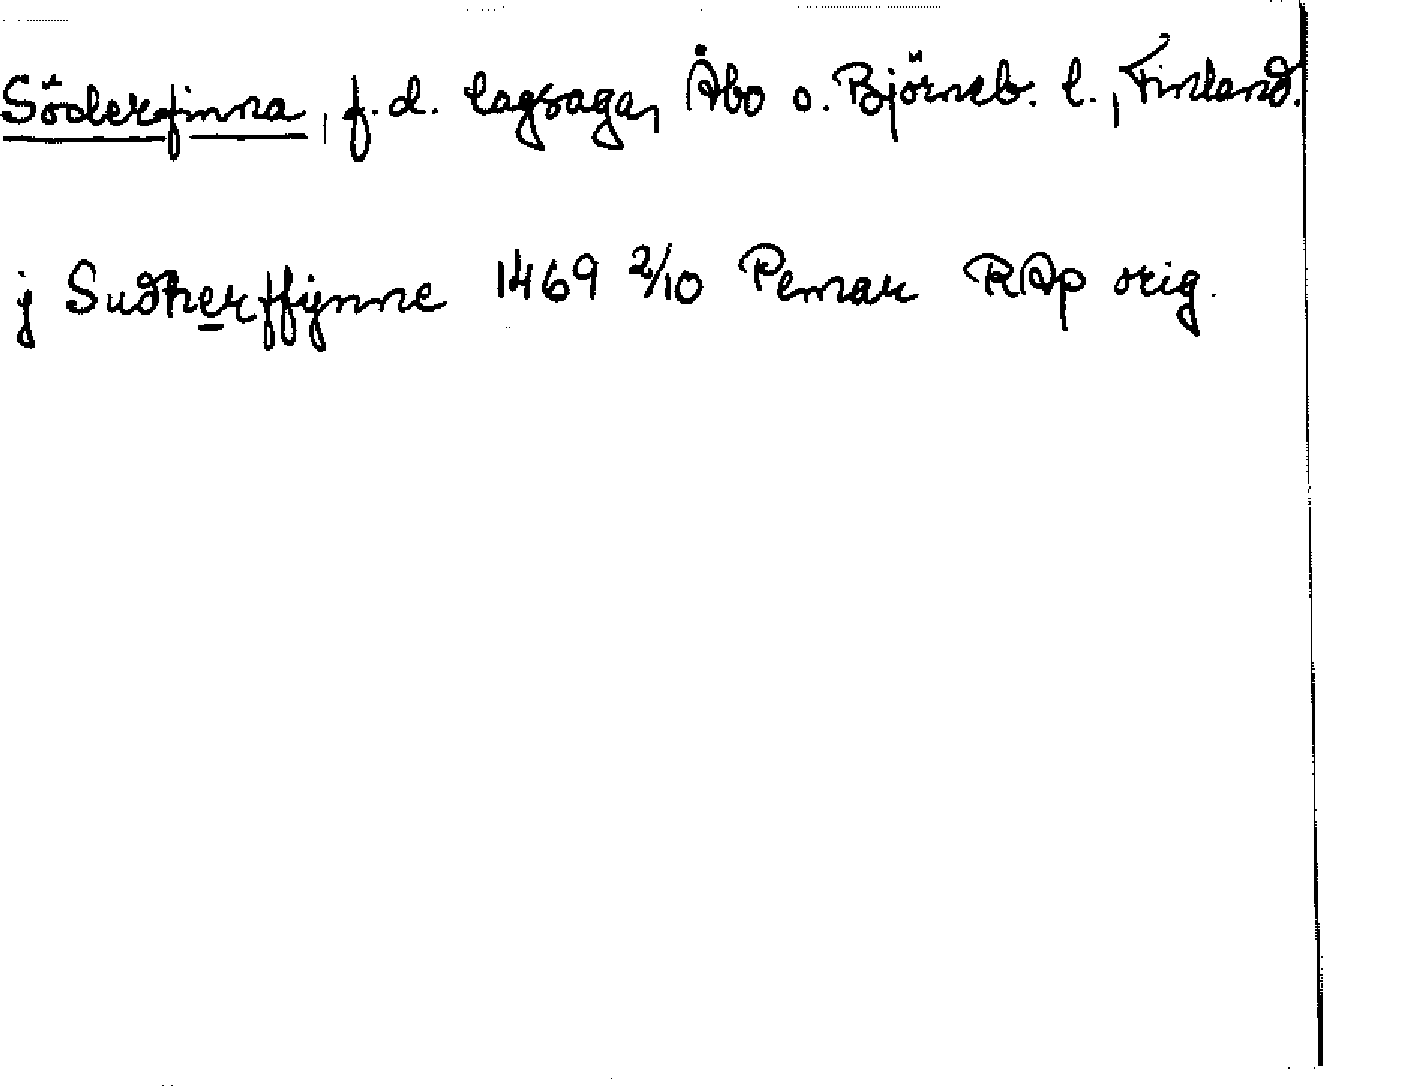 Söderfinna, f. d. lagsaga, Åbo o. Björneb. l., Finland.
j Sudherffynne 1469 2/10 Pemar RAp orig.